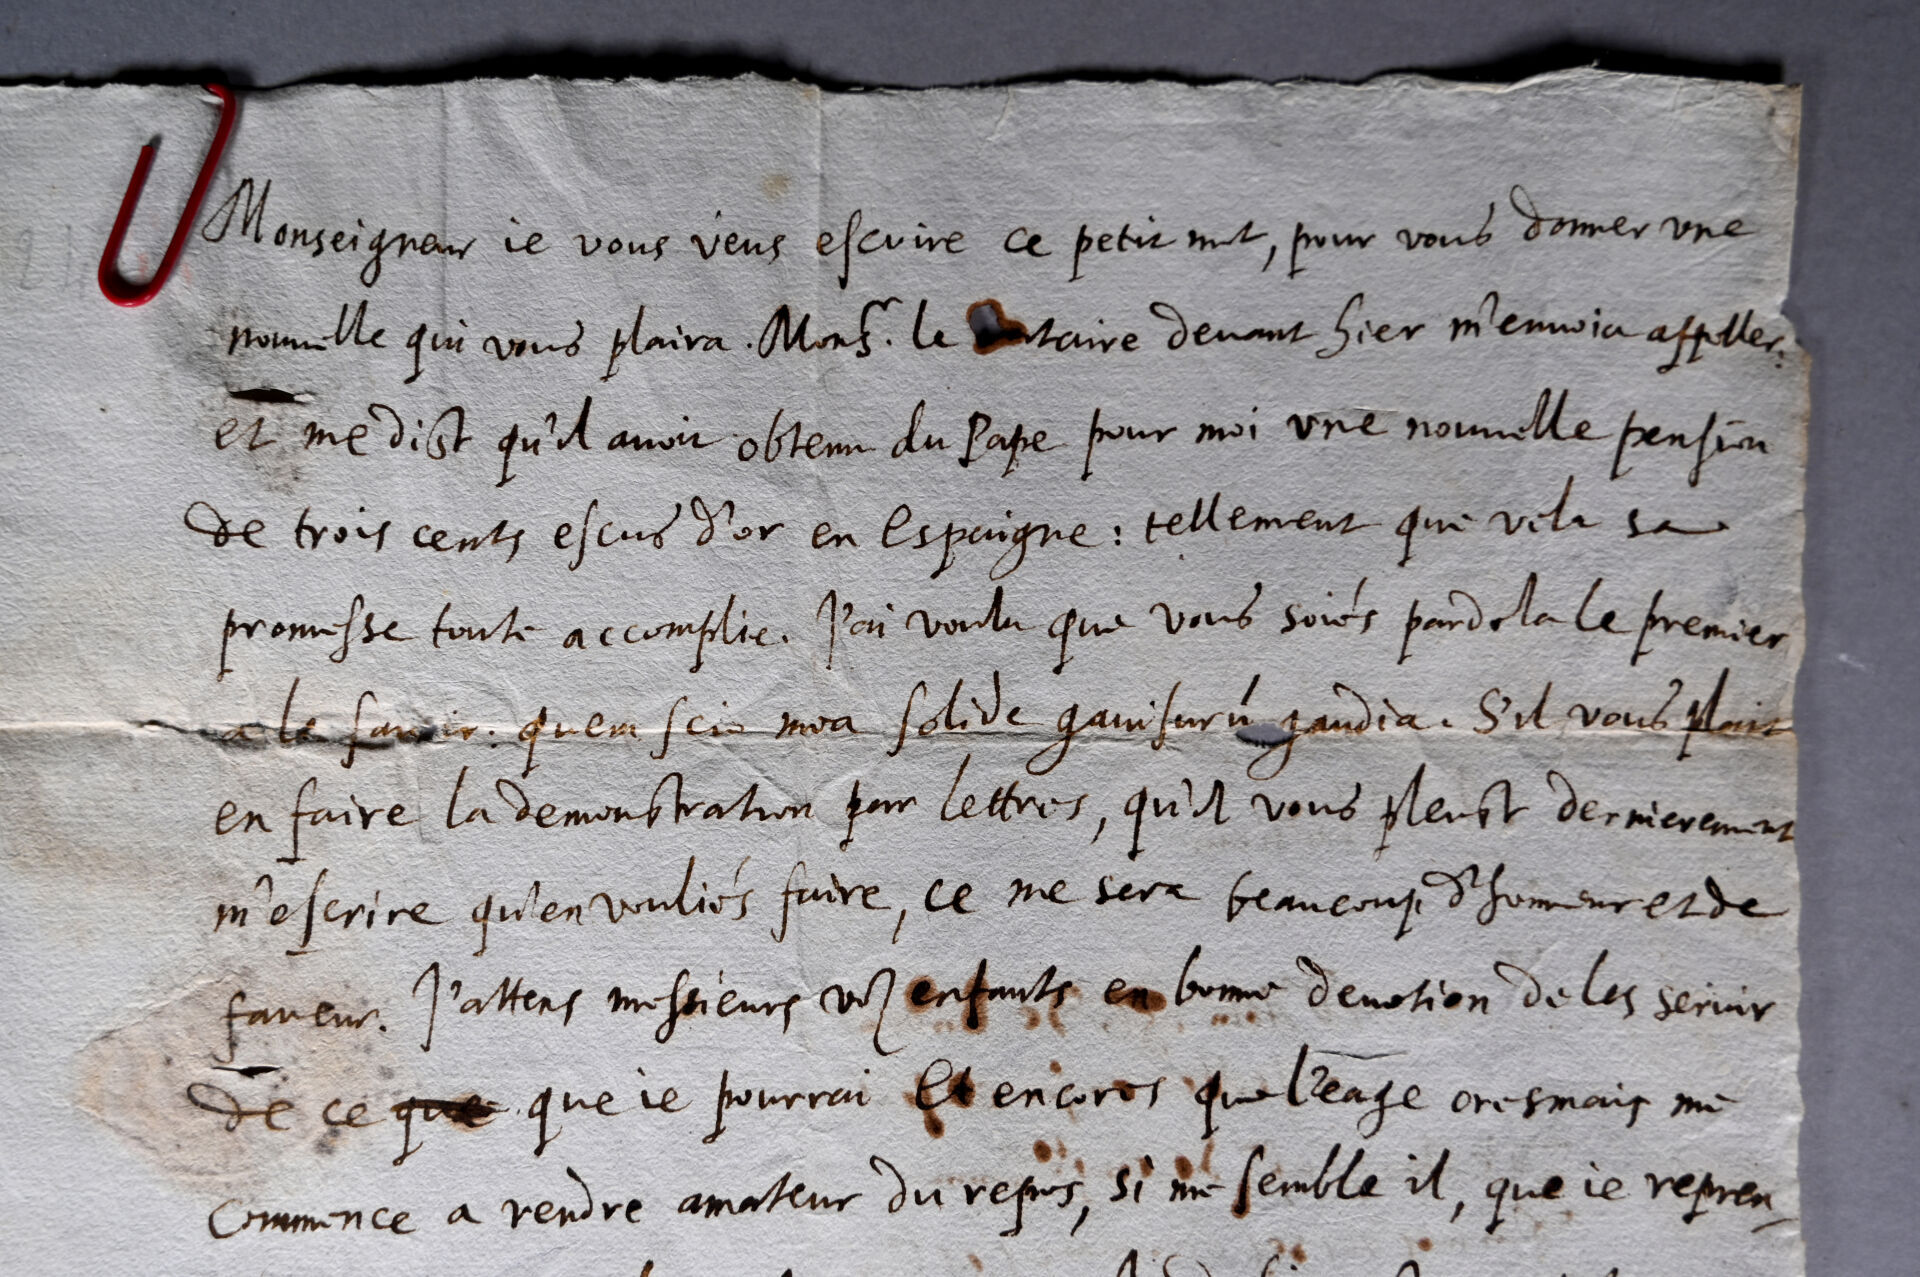 Monseigneur ie vous veus escrire ce petit mot, pour vous donner vne
nouuelle qui vous plaira. Monsr. le taire deuant hier m'enuoia appeller.
et me dist qu'il auoit obtenu du Pape pour moi vne nouuelle pension
de trois cents escus d'or en Espaigne: tellement que vela sa
promesse toute accomplie. J'ai voulu que vous soiés pardela le premier
a le sauoir. quem scio mea solide gauisurū gaudia. S'il vous plait
en faire la demonstration par lettres, qu'il vous pleust dernierement
m'escrire qu'en vouliés faire, ce me sera beaucoup d'honneur et de
faueur. J'attens messieurs voz enfants en bonne deuotion de les seruir
de ce que ie pourrai Et encores que l'eage oresmais me
commence a rendre amateur du repos, si me semble il, que ie repren-